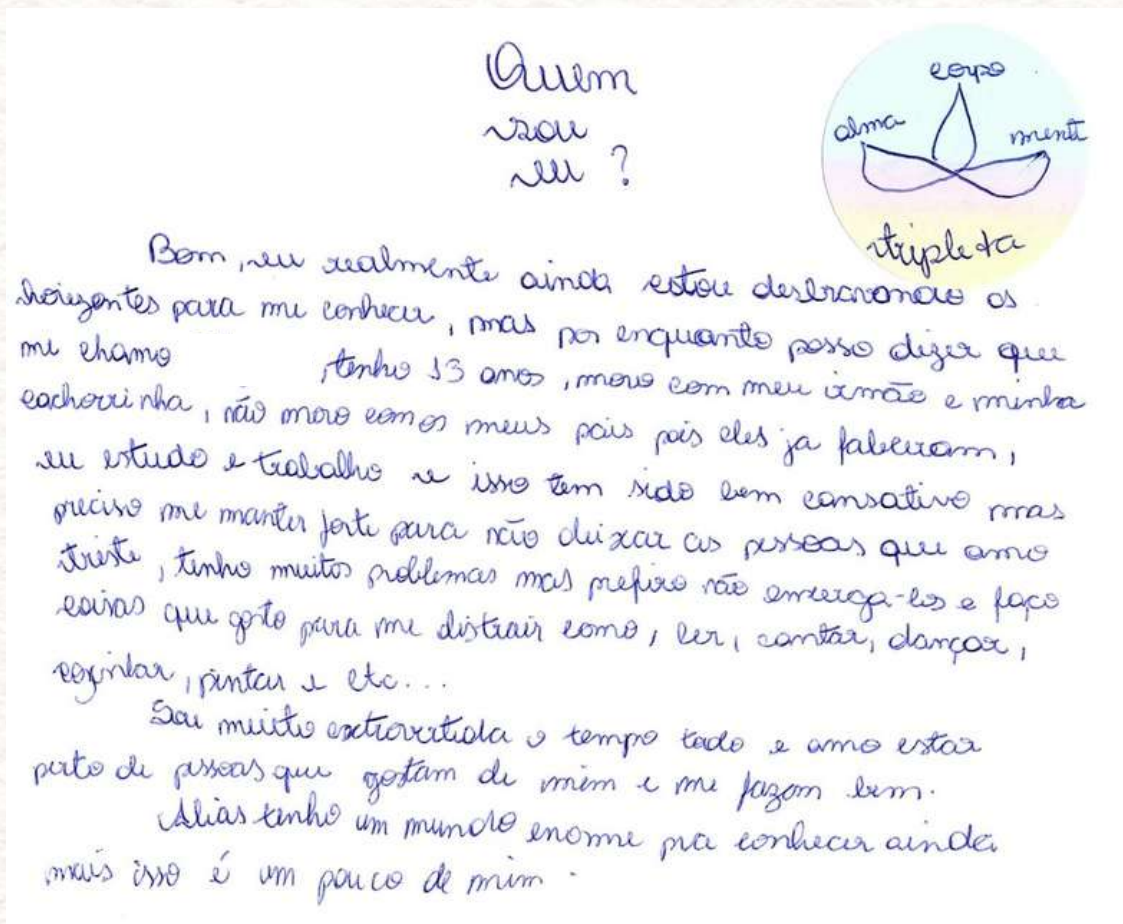 Quem
sou
eu ?
corpo
alma
mente
tripleta
Bom, eu realmente ainda estou desbravando os
horizontes para me conhecer, mas por enquanto posso dizer que
me chamo , tenho 13 anos, moro com meu irmão e minha
cachorrinha, não moro com os meus pais pois eles ja faleceram,
eu estudo e trabalho e isso tem sido bem cansativo mas
preciso me manter forte para não deixar as pessoas que amo
triste, tenho muitos problemas mas prefiro não enxerga-los e faço
coisas que gosto para me distrair como, ler, cantar, dançar,
cozinhar, pintar e etc...
Sou muito extrovertida o tempo todo e amo estar
perto de pessoas que gostam de mim e me fazem bem.
Alias tenho um mundo enorme pra conhecer ainda
mais isso é um pouco de mim.